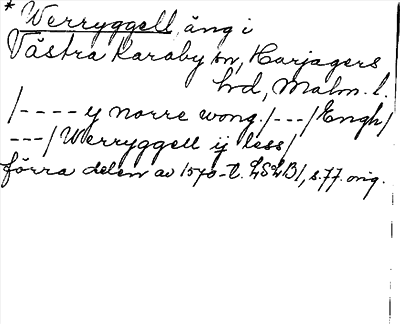 * Werryggell, äng i
Västra Karaby sn, Harjagers
hd, Malm. l.
/---- y norre wong./---/Engh/
---/Werryggell ij less/
förra delen av 1540-t. LSLB1, s.77. orig.